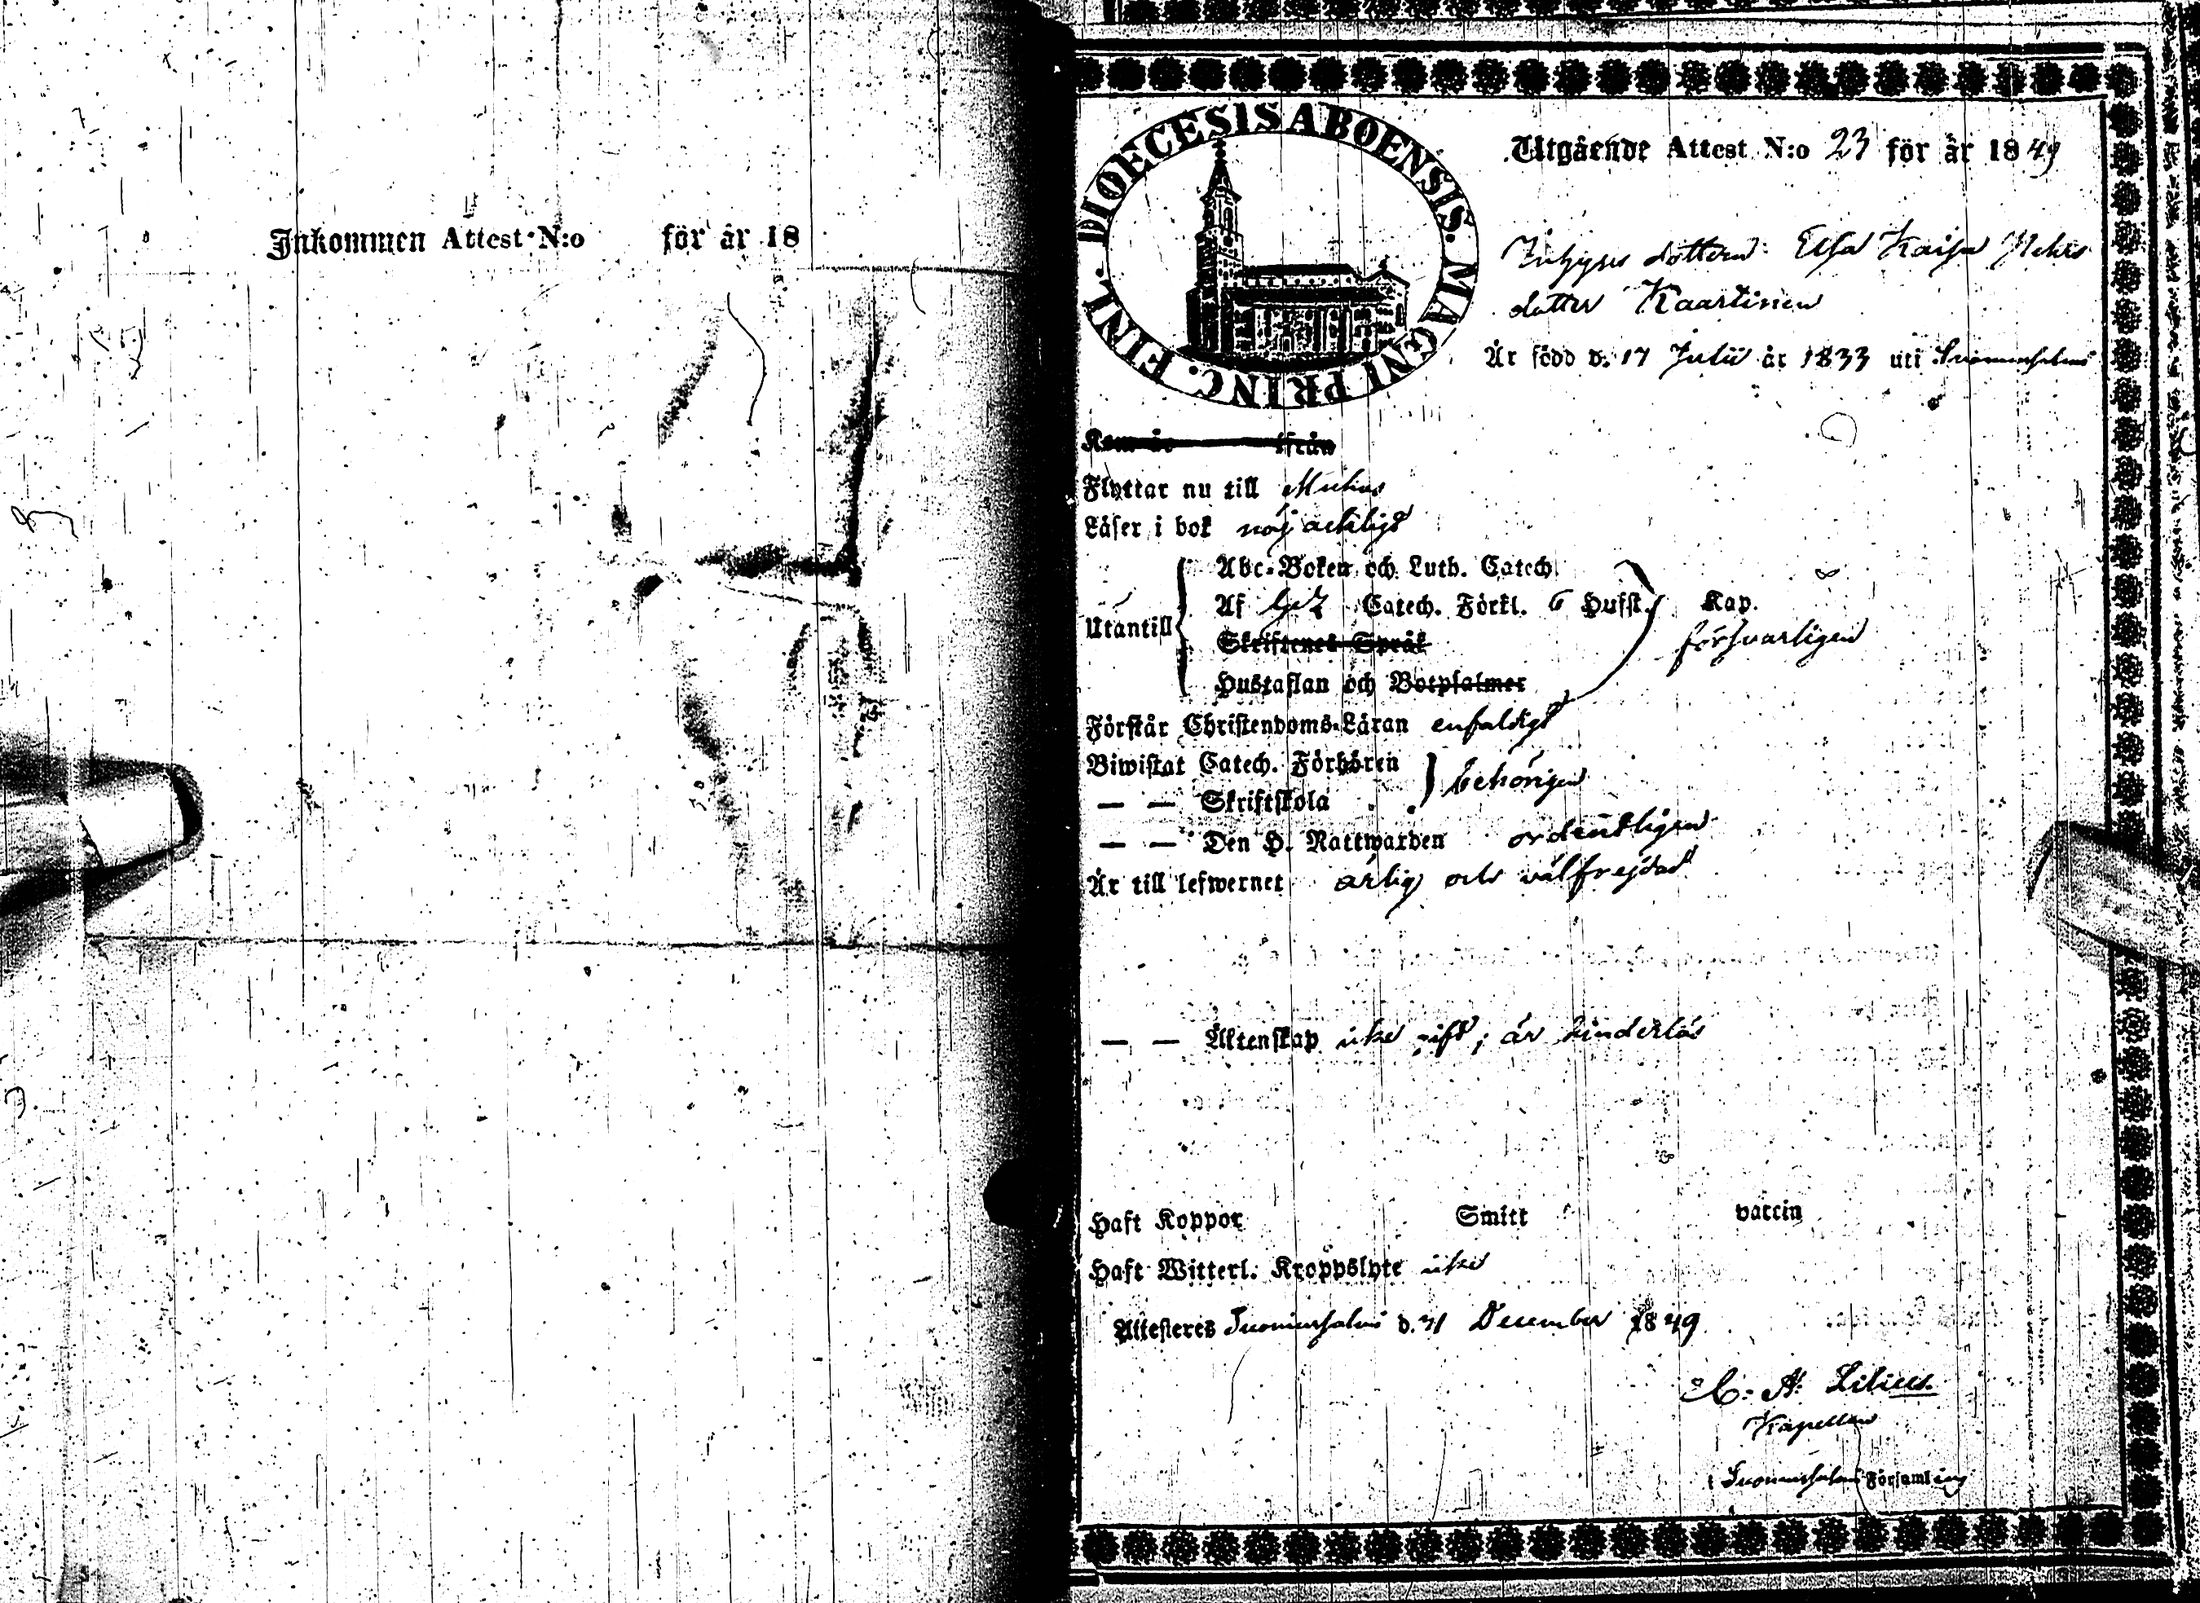 Inkommen Attest N:o för år 18
DIOECESIS ABOENSIS. MAGNI PRINC. FINL.
Utgående Attest N:o 23 för år 1849
Inhyses dottern Elsa Kaisa
dotter Kaartinen
Är född d. 17 Julii år 1833 uti Suomussalmi
Kom år ifrån
Flyttar nu till Muhos
Läser i bok nöjacktligt
Utantill
Abc-Boken och Luth. Catech.
Af Catech. Förkl. 6 Hufst. Kap.
Skriftenes Språk
försvarligen
Hustaflan och Botpsalmer
Förstår Christendoms-Läran enfaldigt
Biwistat Catech. Förhören
— — Skriftskola
behörigen
— — Den H. Nattwarden ordentligen
Är till lefwernet ärlig och välfrejdad
— — Äktenskap icke gift; är hinderlös
Haft Koppor Smitt vaccin
Haft Witterl. Kroppslyte icke
Attesteres Suomussalmi d. 31 December 1849
C. A. Lilius.
Kapellan
i Suomussalmi Församling